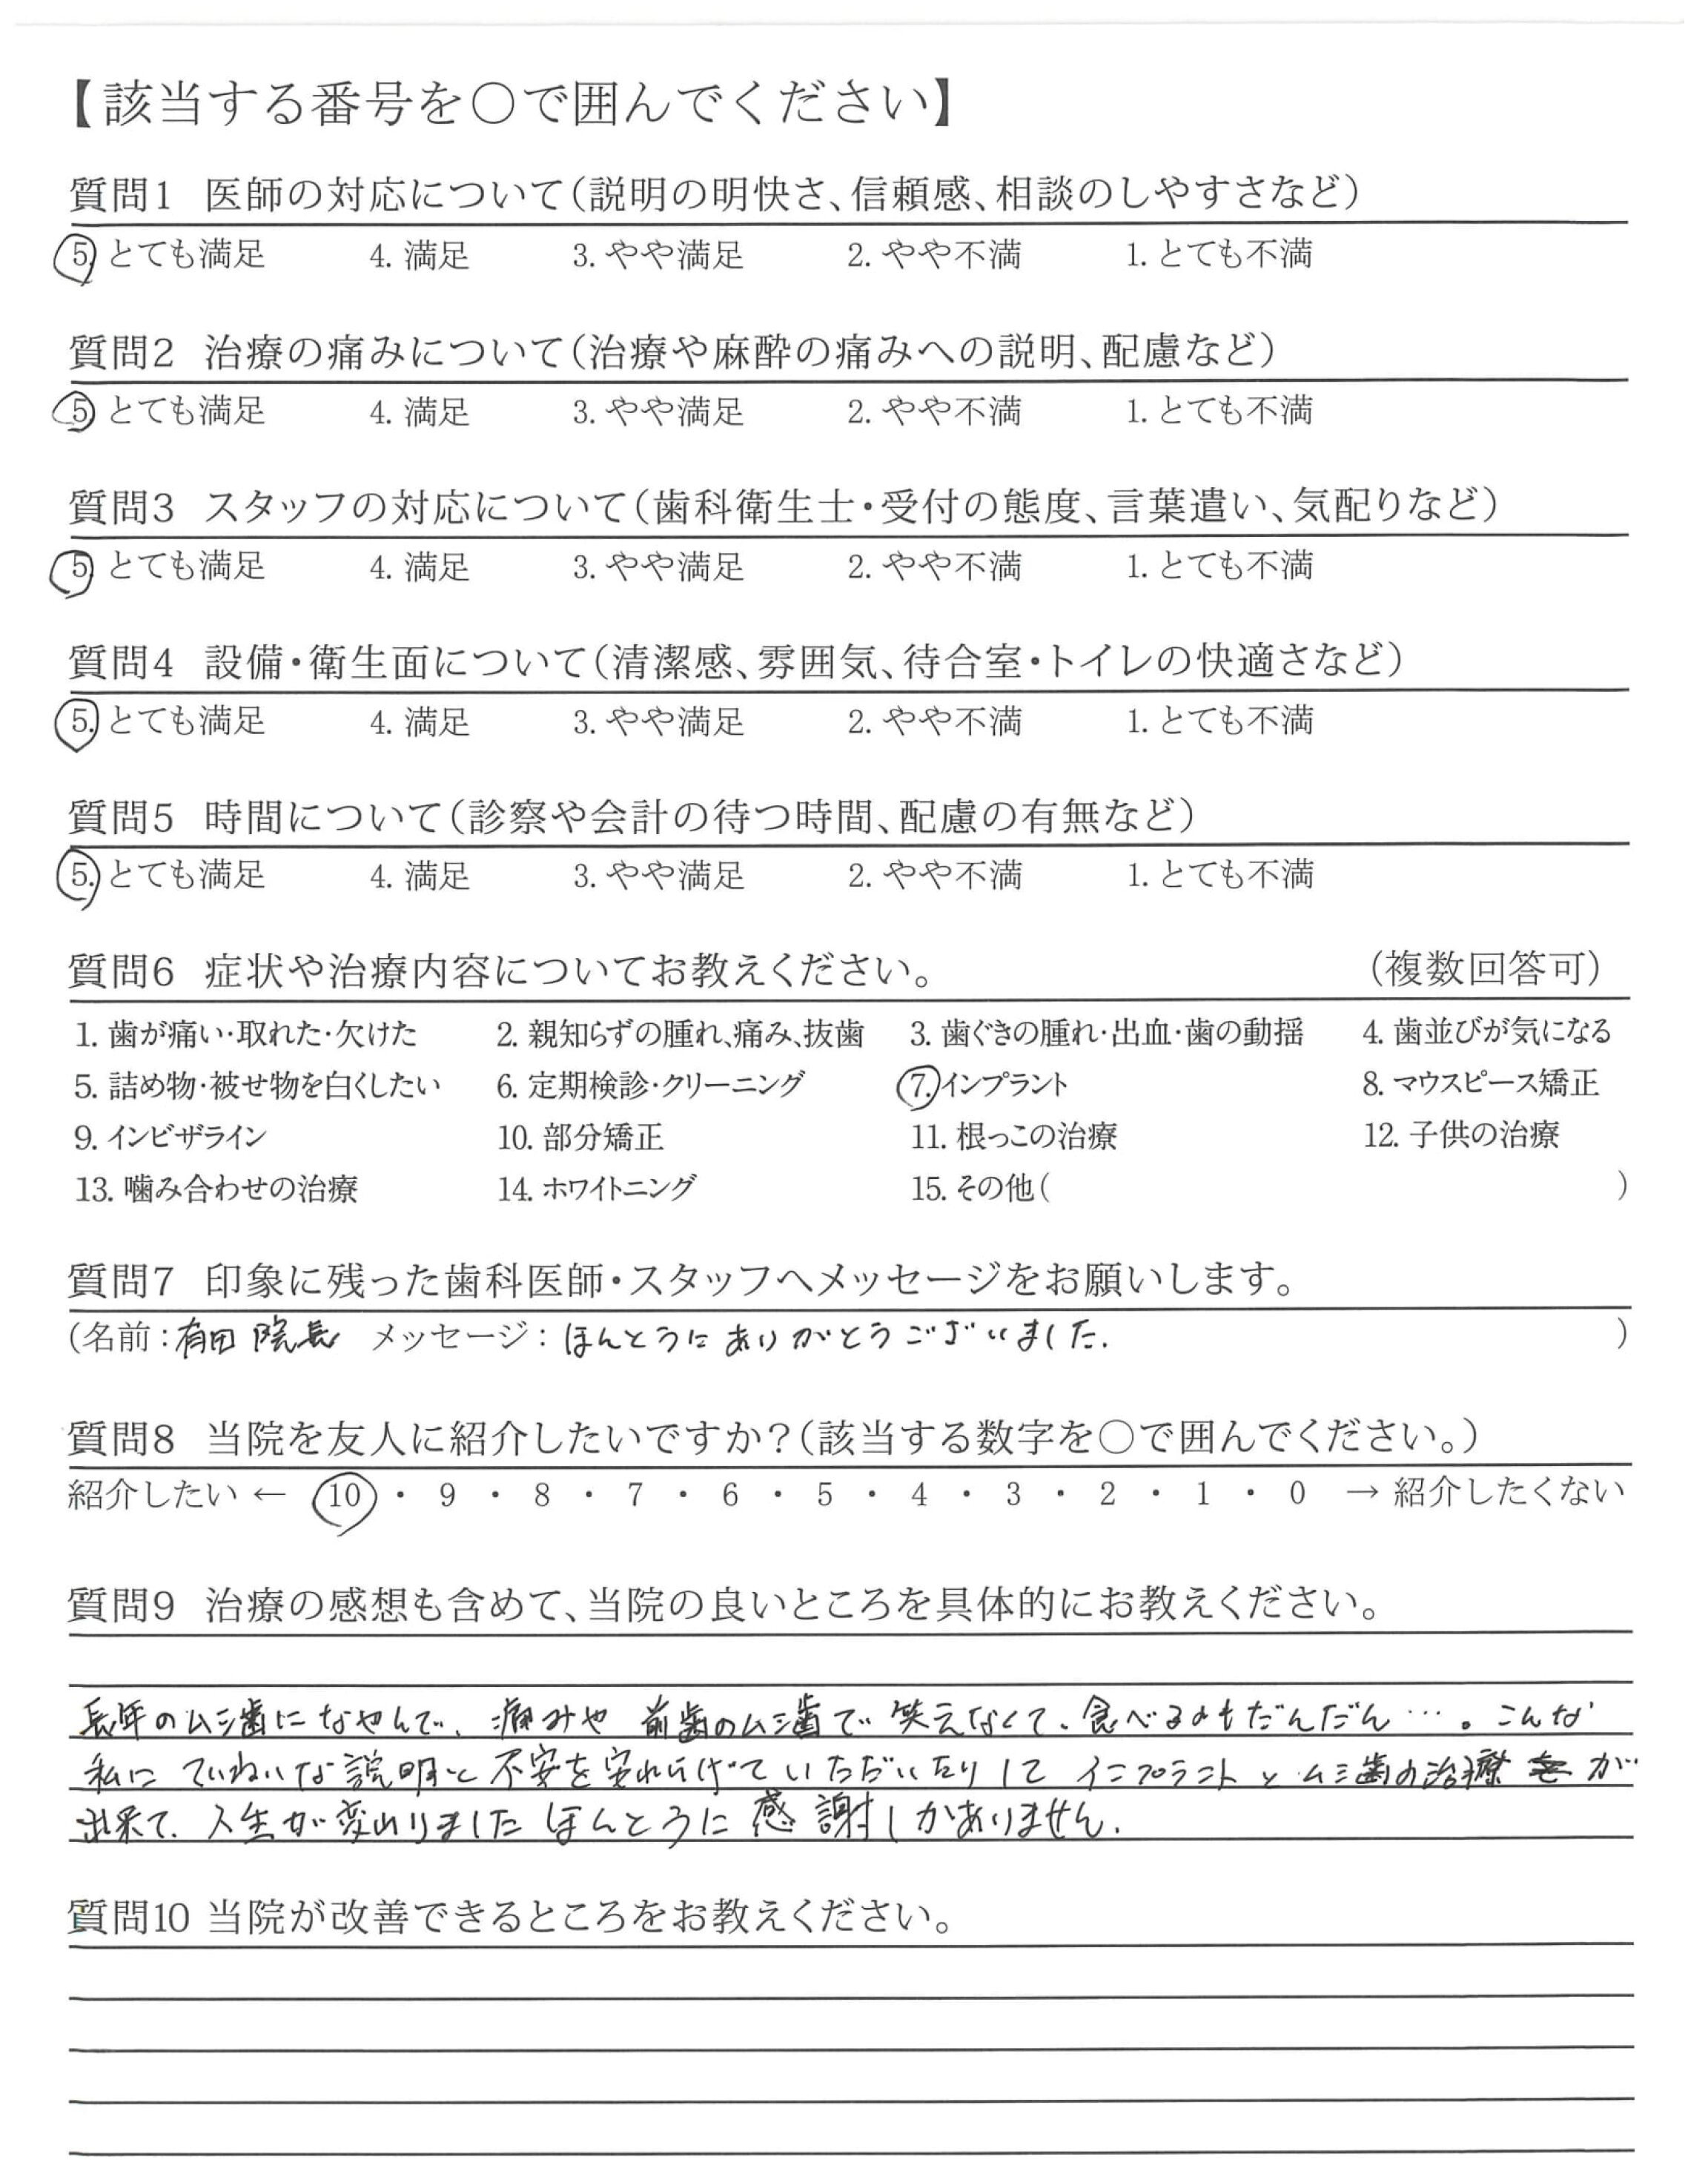 【該当する番号を○で囲んでください】
質問1 医師の対応について(説明の明快さ、信頼感、相談のしやすさなど)
5. とても満足 4. 満足 3. やや満足 2. やや不満 1. とても不満
質問2 治療の痛みについて(治療や麻酔の痛みへの説明、配慮など)
5. とても満足 4. 満足 3. やや満足 2. やや不満 1. とても不満
質問3 スタッフの対応について(歯科衛生士・受付の態度、言葉遣い、気配りなど)
5. とても満足 4. 満足 3. やや満足 2. やや不満 1. とても不満
質問4 設備・衛生面について(清潔感、雰囲気、待合室・トイレの快適さなど)
5. とても満足 4. 満足 3. やや満足 2. やや不満 1. とても不満
質問5 時間について(診察や会計の待つ時間、配慮の有無など)
5. とても満足 4. 満足 3. やや満足 2. やや不満 1. とても不満
質問6 症状や治療内容についてお教えください。 (複数回答可)
1. 歯が痛い・取れた・欠けた 2. 親知らずの腫れ、痛み、抜歯 3. 歯ぐきの腫れ・出血・歯の動揺 4. 歯並びが気になる
5. 詰め物・被せ物を白くしたい 6. 定期検診・クリーニング 7. インプラント 8. マウスピース矯正
9. インビザライン 10. 部分矯正 11. 根っこの治療 12. 子供の治療
13. 噛み合わせの治療 14. ホワイトニング 15. その他( )
質問7 印象に残った歯科医師・スタッフへメッセージをお願いします。
(名前:有田 院長 メッセージ:ほんとうにありがとうございました. )
質問8 当院を友人に紹介したいですか?(該当する数字を○で囲んでください。)
紹介したい ← 10 ・ 9 ・ 8 ・ 7 ・ 6 ・ 5 ・ 4 ・ 3 ・ 2 ・ 1 ・ 0 → 紹介したくない
質問9 治療の感想も含めて、当院の良いところを具体的にお教えください。
長年のムシ歯になやんで、痛みや 前歯のムシ歯で 笑えなくて、食べるのもだんだん…。こんな
私に ていねいな説明と 不安を いただいたりして インプラント と ムシ歯の治療 が
出来て、人生が変わりました ほんとうに 感謝しかありません.
質問10 当院が改善できるところをお教えください。